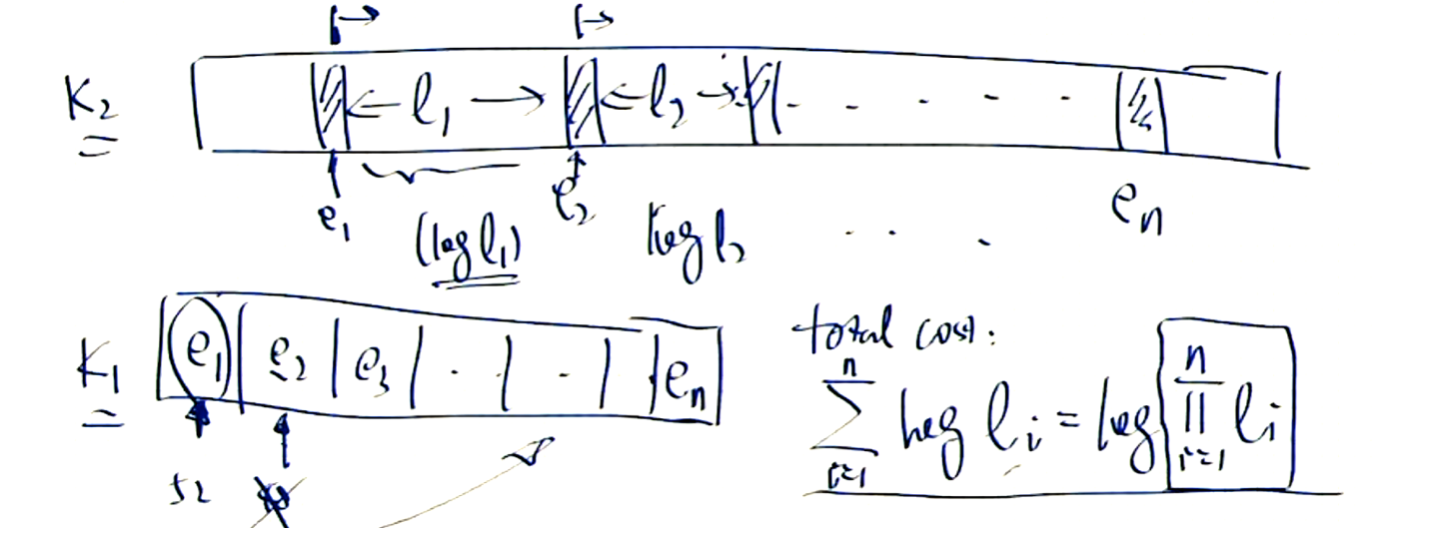 K₂ ← l₁ → ← l₂ → . . . . .
e₁ e₂ eₙ
(log l₁) log l₂ . . .
K₁ e₁ e₂ e₃ . . eₙ
total cost:
∑ᵢ₌₁ⁿ log lᵢ = log ∏ᵢ₌₁ⁿ lᵢ
52